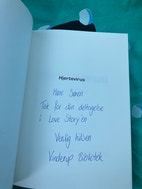 Hjertevirus
Kære Søren
Tak for din deltagelse
i Love Story'en
Venlig hilsen
Vinderup Bibliotek